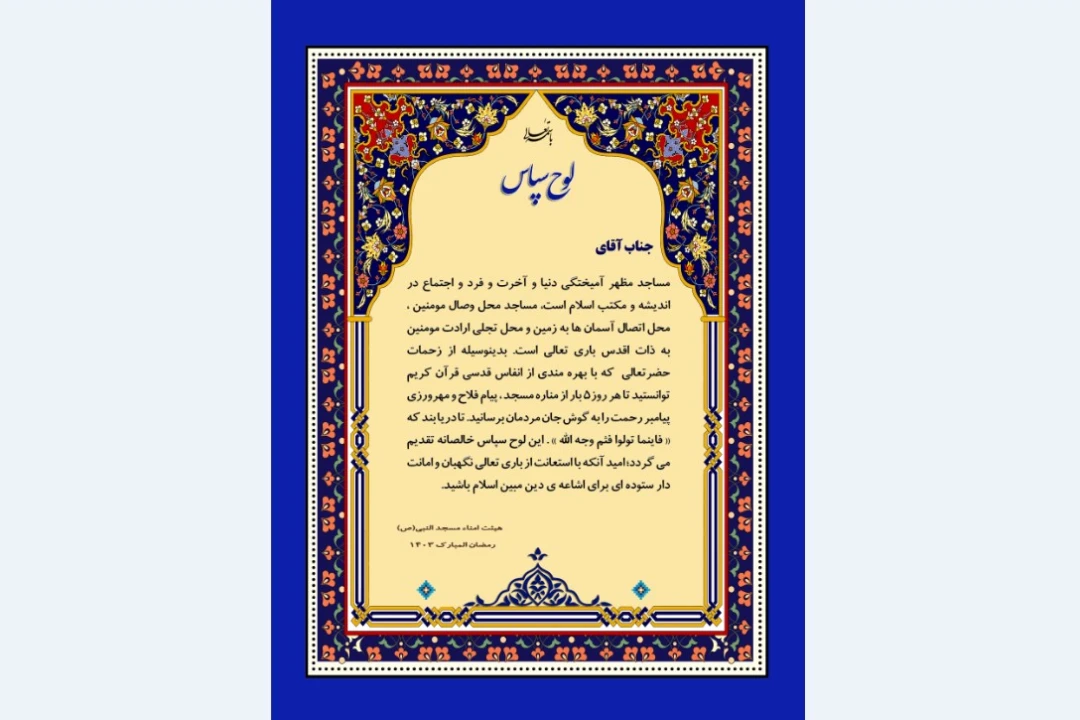 باسمه تعالی
لوح سپاس
جناب آقای
مساجد مظهر آمیختگی دنیا و آخرت و فرد و اجتماع در
اندیشه و مکتب اسلام است، مساجد محل وصال مومنین ،
محل اتصال آسمان ها به زمین و محل تجلی ارادت مومنین
به ذات اقدس باری تعالی است. بدینوسیله از زحمات
حضرتعالی که با بهره مندی از انفاس قدسی قرآن کریم
توانستید تا هر روز ۵ بار از مناره مسجد ، پیام فلاح و مهرورزی
پیامبر رحمت را به گوش جان مردمان برسانید. تا دریابند که
« فاینما تولوا فثم وجه الله » . این لوح سپاس خالصانه تقدیم
می گردد؛ امید آنکه با استعانت از باری تعالی نگهبان و امانت
دار ستوده ای برای اشاعه ی دین مبین اسلام باشید.
هیئت امناء مسجد النبی(ص)
رمضان المبارک ۱۴۰۳